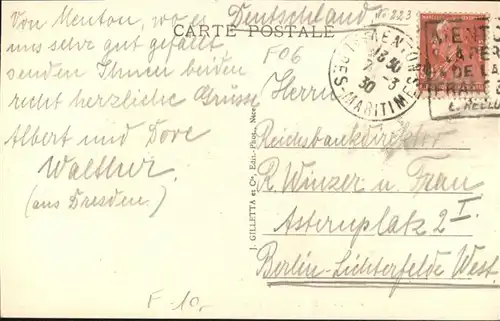 Deutschland
No 223
CARTE POSTALE
Von Menton, wo es
uns sehr gut gefällt,
senden Ihnen beiden
recht herzliche Grüsse
Albert und Dore
Walther.
(aus Dresden.)
F06
F-10,-
J. GILLETTA et Cie, Edit.-Phot., Nice
MENTON
13 30
2-3
30
ALPES-MARITIMES
MENTO
LA PER
DE LA
FRAN
Herrn
Reichsbankdirektor
R. Winzer u Frau
Asternplatz 2 I.
Berlin-Lichterfelde West.